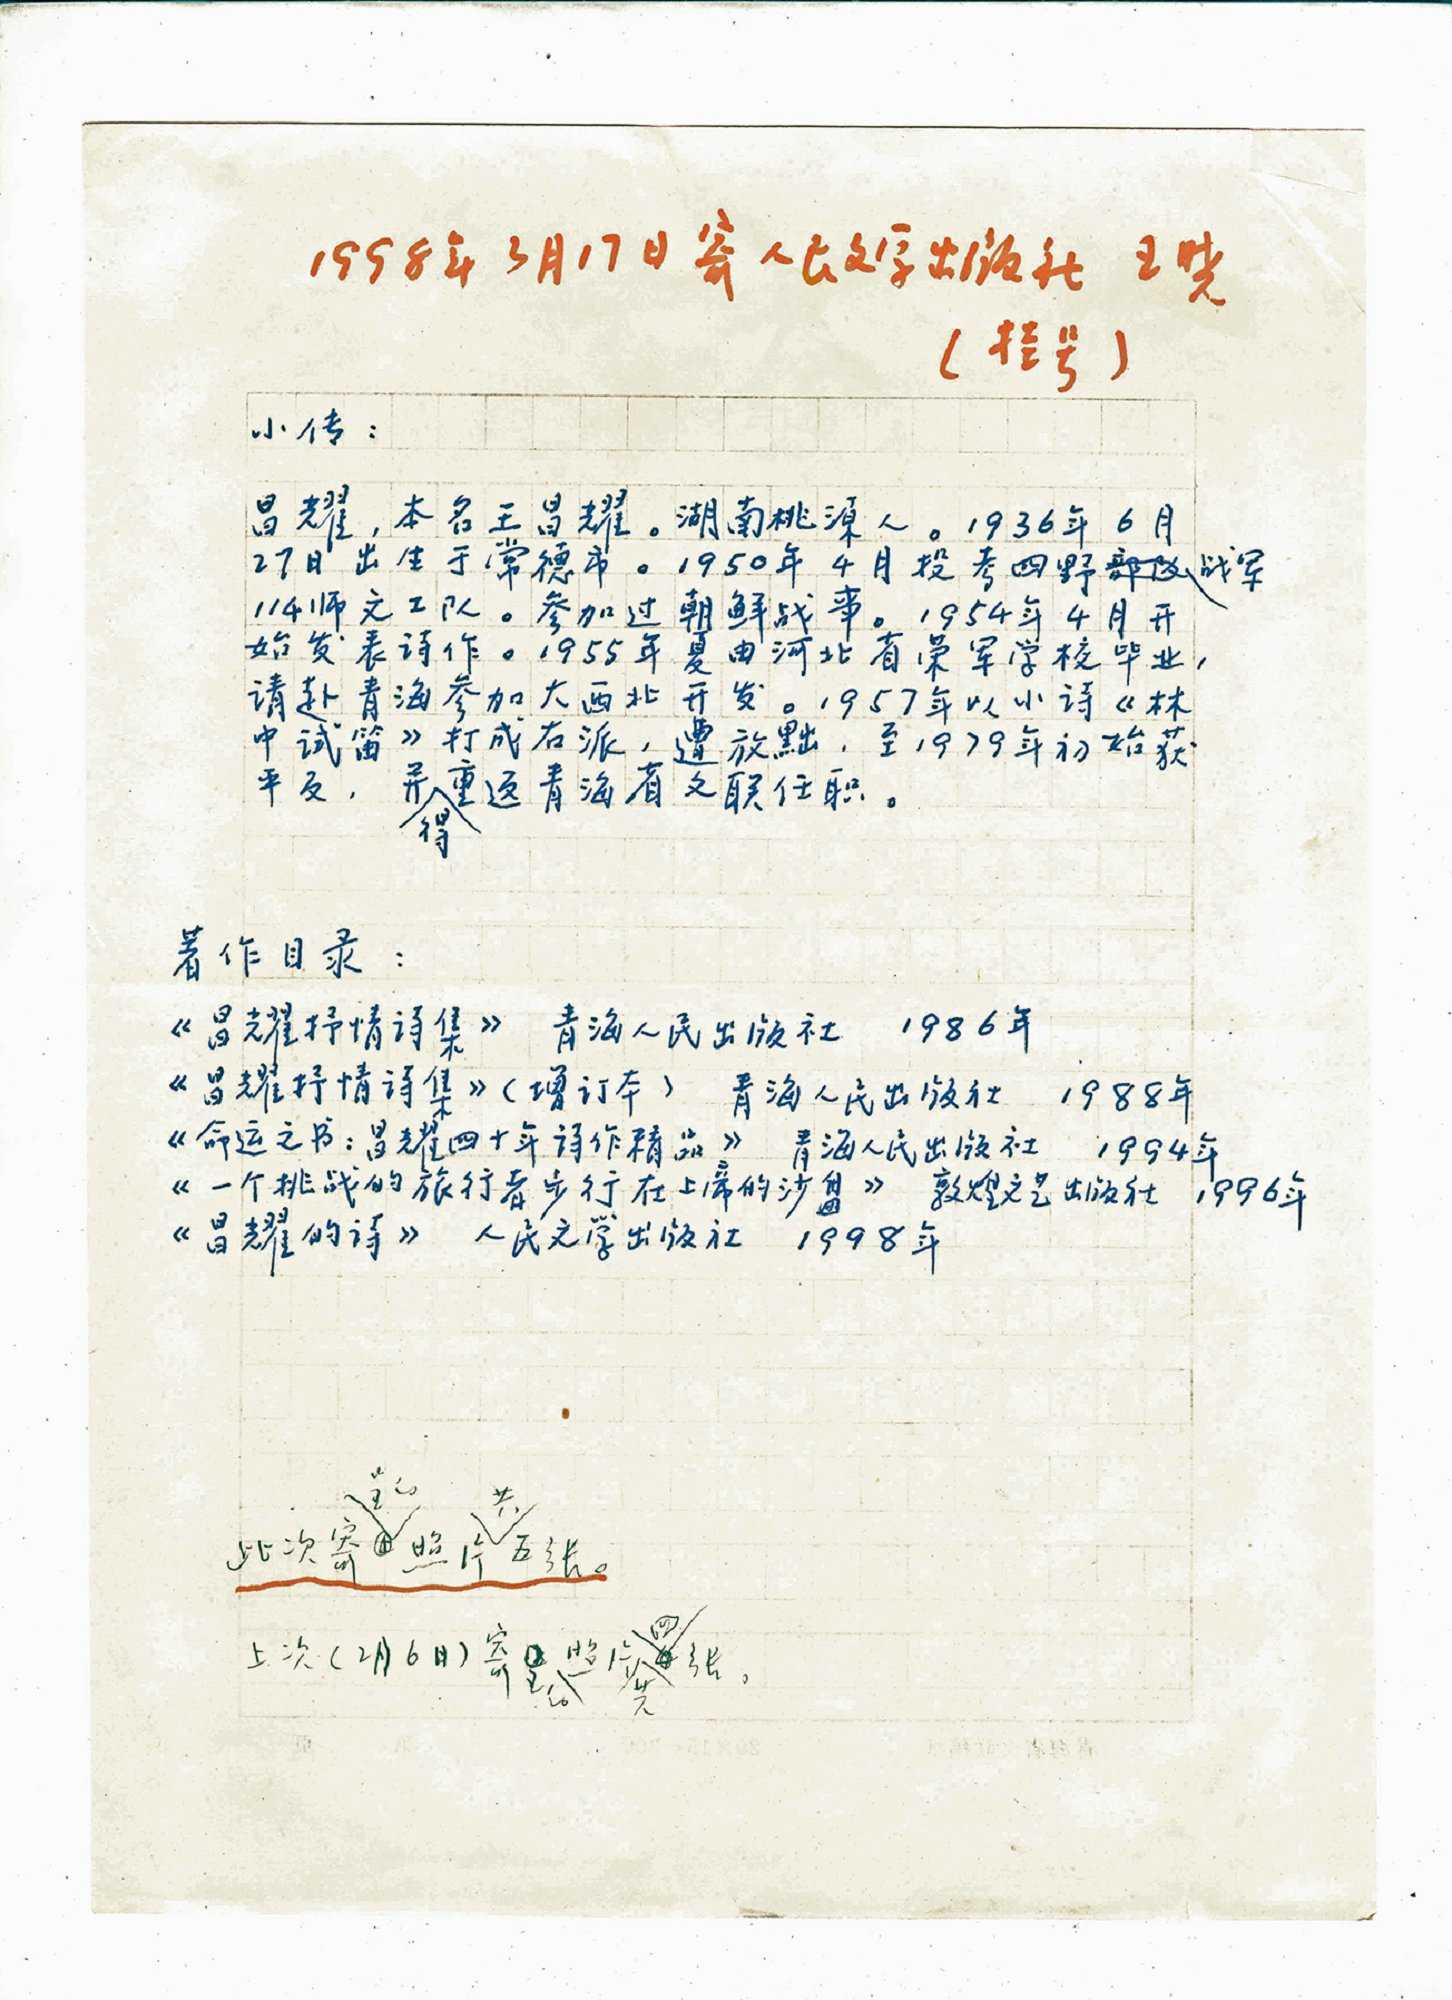 1998年3月17日寄人民文学出版社 王晓
(挂号)
小传：
昌耀，本名王昌耀。湖南桃源人。1936年6月
27日出生于常德市。1950年4月投考四野部队战军
114师文工队。参加过朝鲜战事。1954年4月开
始发表诗作。1955年夏由河北省荣军学校毕业，
请赴青海参加大西北开发。1957年以小诗《林
中试笛》打成右派，遭放黜，至1979年初始获
平反，并得重返青海省文联任职。
著作目录：
《昌耀抒情诗集》 青海人民出版社 1986年
《昌耀抒情诗集》(增订本) 青海人民出版社 1988年
《命运之书：昌耀四十年诗作精品》 青海人民出版社 1994年
《一个挑战的旅行者步行在上帝的沙盘》 敦煌文艺出版社 1996年
《昌耀的诗》 人民文学出版社 1998年
此次寄照片共五张。
上次(2月6日)寄照片共四张。